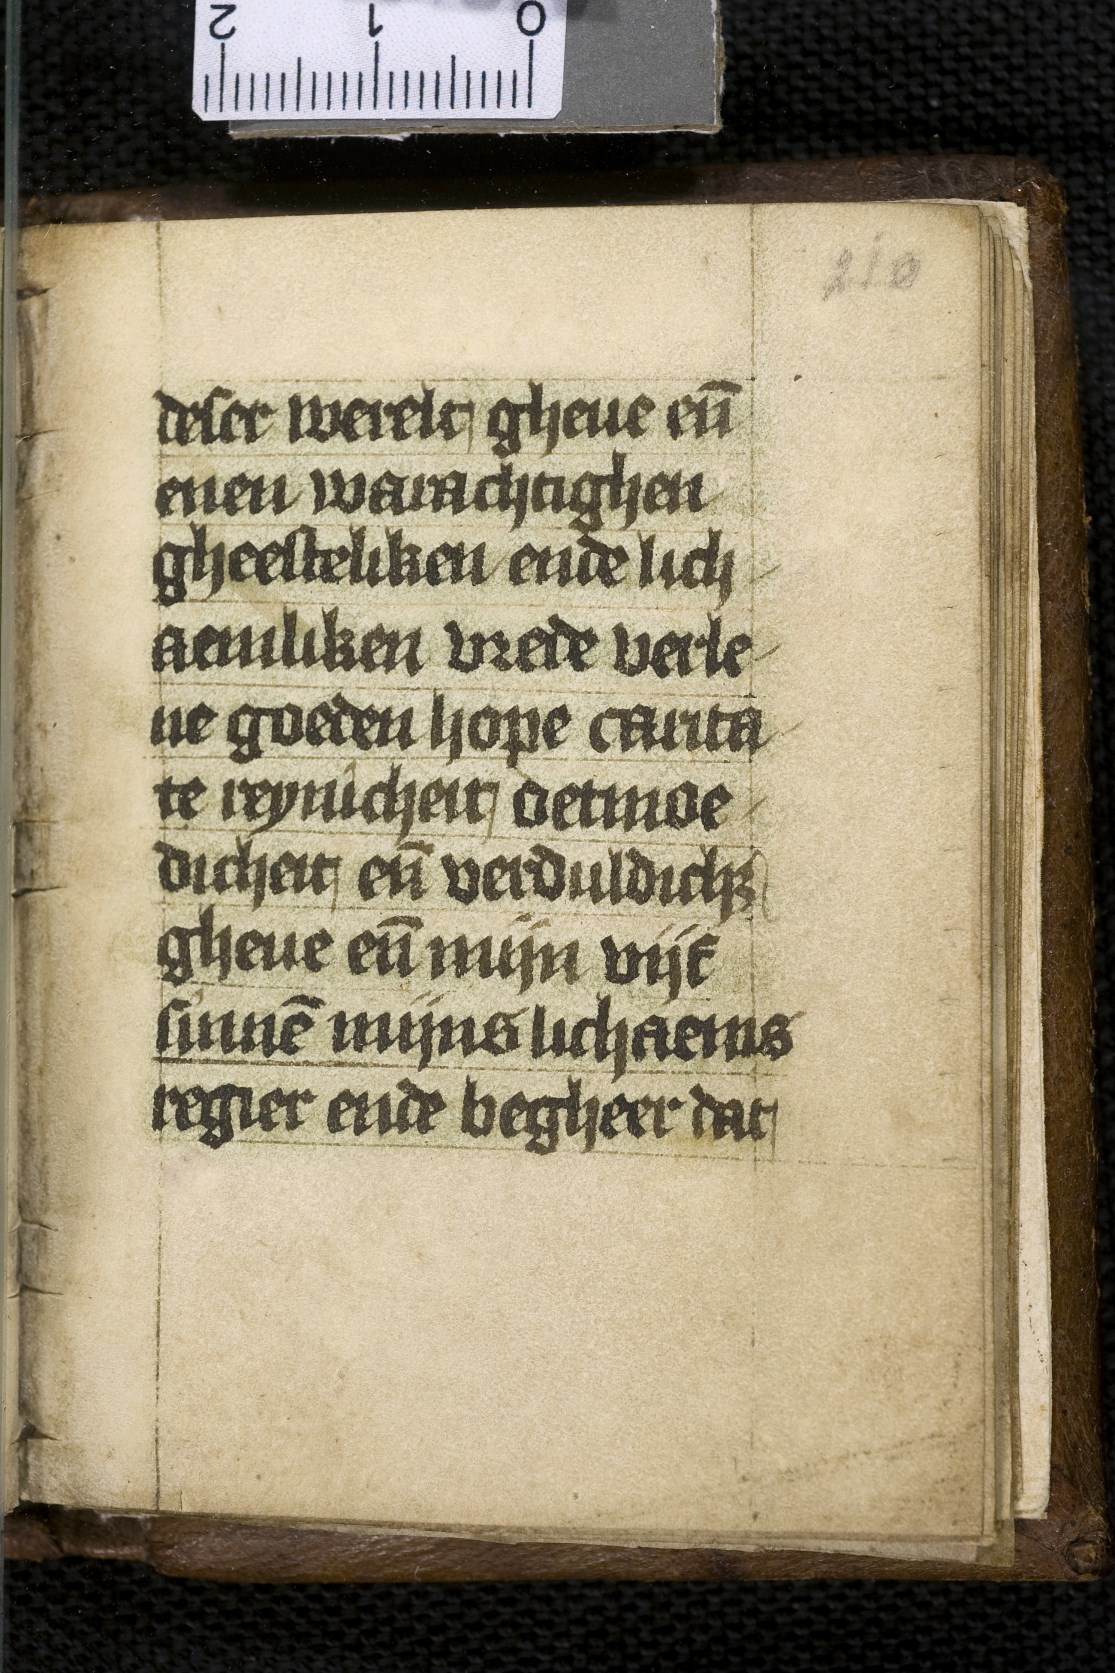 2 1 0
210
deser werelt gheue en̄
enen warachtighen
gheesteliken ende lich
aemliken vrede verle
ne goeden hope carita
te reynicheit oetmoe
dicheit en̄ verduldichꝫ
gheue en̄ mijn vijf
sinnē mijns lichaems
regier ende begheer dat